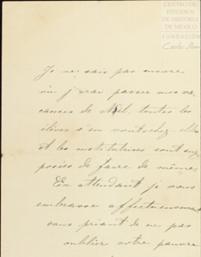 CENTRO DE
ESTUDIOS
DE HISTORIA
DE MÉXICO
FUNDACIÓN
Carlos Slim
Je ne sais pas encore
où j'irai passer mes va
cances de Noël, toutes les
élèves s'en vont chez elle
et les institutrices sont
posées de faire de même.
En attendant je vous
embrasse affectueuseme
vous priant de ne pas
oublier votre pauvre